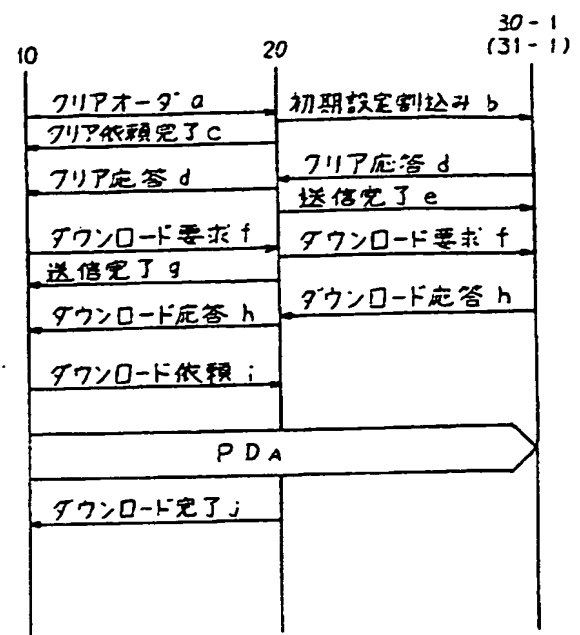 30-1
10
20
(31-1)
クリアオーダ a
初期設定割込み b
クリア依頼完了 c
クリア応答 d
クリア応答 d
送信完了 e
ダウンロード要求 f
ダウンロード要求 f
送信完了 g
ダウンロード応答 h
ダウンロード応答 h
ダウンロード依頼 i
PDA
ダウンロード完了 j